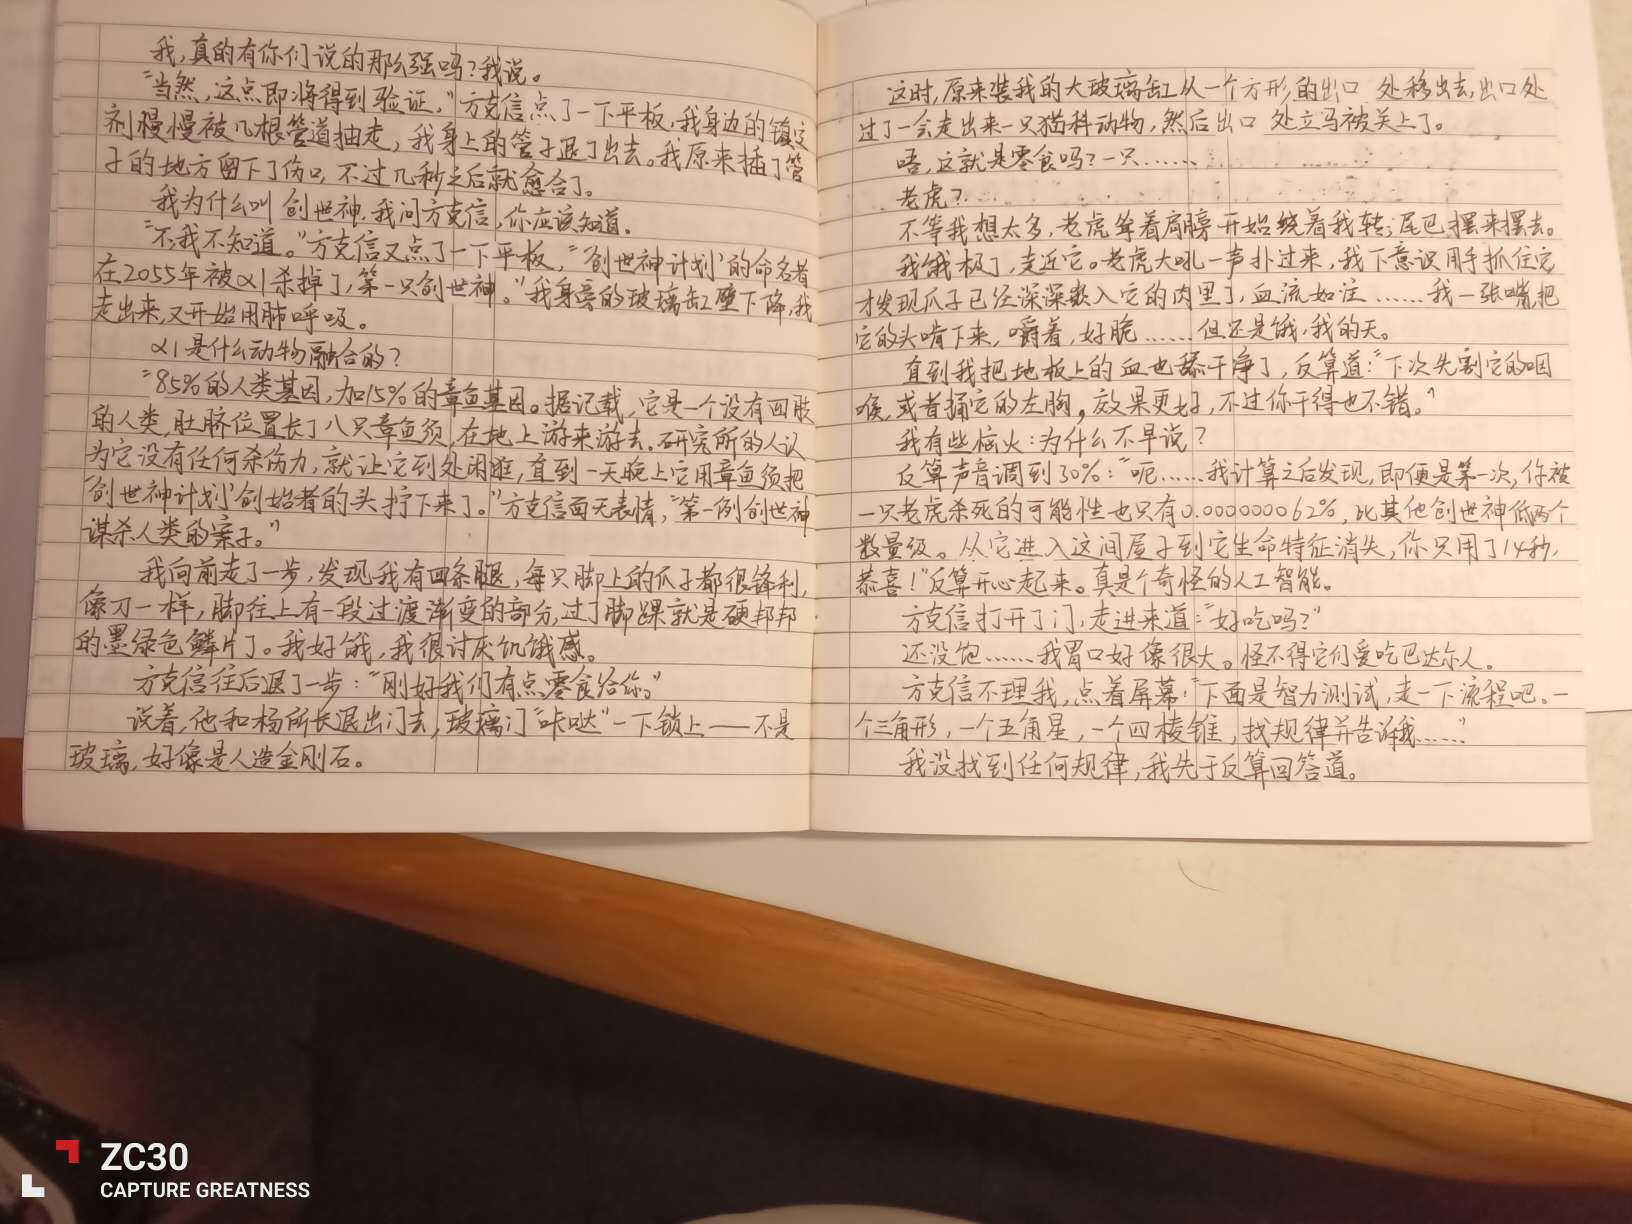 我,真的有你们说的那么强吗?我说。
"当然,这点即将得到验证,"方克信点了一下平板,我身边的镇定
剂慢慢被几根管道抽走,我身上的管子退了出去。我原来插了管
子的地方留下了伤口,不过几秒之后就愈合了。
我为什么叫创世神,我问方克信,你应该知道.
"不,我不知道。"方克信又点了一下平板,"'创世神计划'的命名者
在2055年被α1杀掉了,第一只创世神。"我身旁的玻璃缸壁下降,我
走出来,又开始用肺呼吸。
α1是什么动物融合的?
"85%的人类基因,加15%的章鱼基因。据记载,它是一个没有四肢
的人类,肚脐位置长了八只章鱼须,在地上游来游去.研究所的人认
为它没有任何杀伤力,就让它到处闲逛,直到一天晚上它用章鱼须把
'创世神计划'创始者的头拧下来了。"方克信面无表情,"第一例创世神
谋杀人类的案子。"
我向前走了一步,发现我有四条腿,每只脚上的爪子都很锋利,
像刀一样,脚往上有一段过渡渐变的部分,过了脚踝就是硬邦邦
的墨绿色鳞片了。我好饿,我很讨厌饥饿感。
方克信往后退了一步:"刚好我们有点零食给你。"
说着,他和杨所长退出门去,玻璃门"咔哒"一下锁上——不是
玻璃,好像是人造金刚石。
这时,原来装我的大玻璃缸从一个方形的出口 处移出去,出口处
过了一会走出来一只猫科动物,然后出口 处立马被关上了。
唔,这就是零食吗?一只……
老虎?
不等我想太多,老虎耸着肩膀开始绕着我转;尾巴摆来摆去。
我饿极了,走近它。老虎大吼一声扑过来,我下意识用手抓住它
才发现爪子已经深深嵌入它的肉里了,血流如注……我一张嘴,把
它的头啃下来,嚼着,好脆……但还是饿,我的天。
直到我把地板上的血也舔干净了,反算道:"下次先割它的咽
喉,或者捅它的左胸,效果更好,不过你干得也不错。"
我有些恼火:为什么不早说?
反算声音调到30%:"呃……我计算之后发现,即便是第一次,你被
一只老虎杀死的可能性也只有0.000000062%,比其他创世神低两个
数量级。从它进入这间屋子到它生命特征消失,你只用了14秒,
恭喜!"反算开心起来。真是个奇怪的人工智能。
方克信打开了门,走进来道:"好吃吗?"
还没饱……我胃口好像很大。怪不得它们爱吃巴达尔人。
方克信不理我,点着屏幕:"下面是智力测试,走一下流程吧。一
个三角形,一个五角星,一个四棱锥,找规律并告诉我……"
我没找到任何规律,我先于反算回答道。
ZC30
CAPTURE GREATNESS